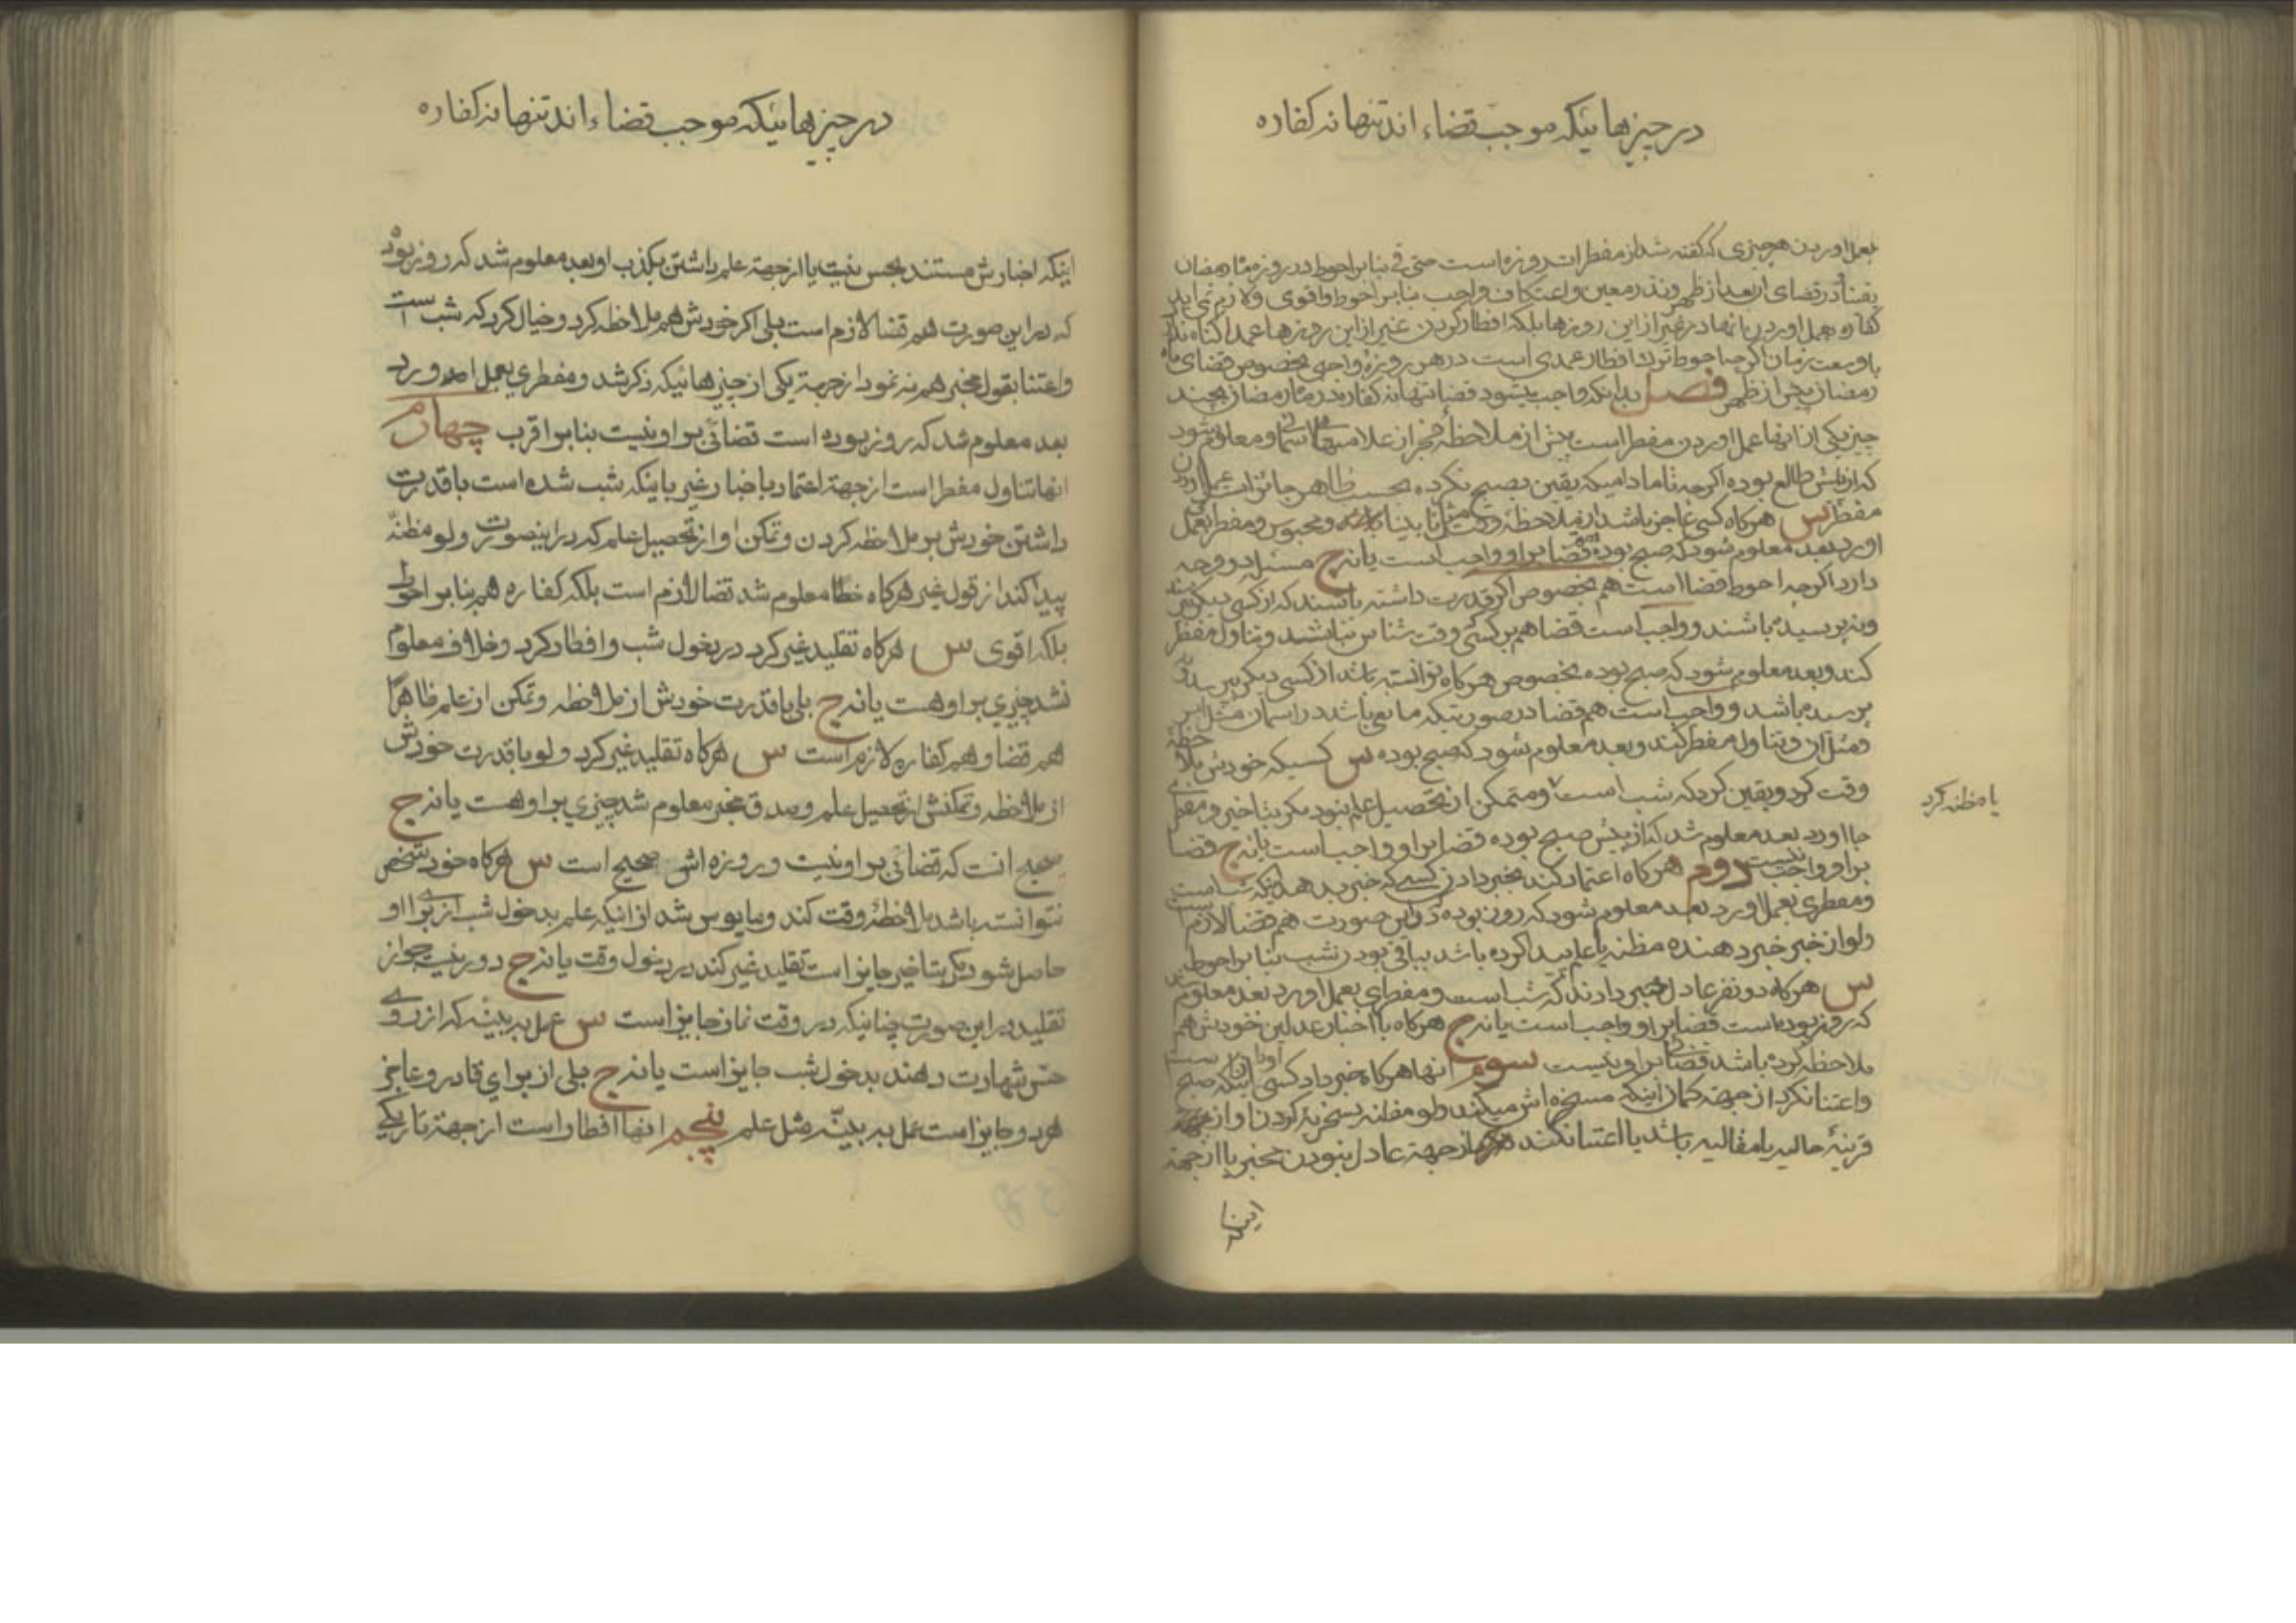 در چیزهائیکه موجب قضاء اند تنها نه کفاره
بعمل اوردن هر چیزی که گفته شد از مفطرات روزه است حتی قی بنابر احوط در روز ماه رمضان
یقینا و در قضای او بعد از ظهر و نذر معین و اعتکاف واجب بنابر احوط و اقوی و لازم نمی اید
کفاره بعمل اوردن انها در غیر از این روزها بلکه افطار کردن غیر از این روزها عمدا کناه ندارد
با وسعت زمان اکرچه احوط ترک افطار عمدی است در هر روزهٔ واجبی بخصوص قضای ماه
رمضان پیش از ظهر فصل بدانکه واجب میشود قضا تنها نه کفاره در ماه رمضان بچند
چیز یکی از انها عمل اوردن مفطر است پیش از ملاحظهٔ فجر از علامتهای اسمانی و معلوم شود
که از پیش طالع بوده اکرچه تا مادامیکه یقین بصبح نکرده بحسب ظاهر جائز است عمل اوردن
مفطر س هرکاه کسی عاجز باشد از ملاحظهٔ وقت مثل نابینا و محبوس و مفطر بعمل
اورد بعد معلوم شود که صبح بوده قضا بر او واجب است یا نه ج مسئله دو وجه
دارد اکرچه احوط قضا است هم بخصوص اکر قدرت داشته باشند که از کسی دیکر بپرسند
و نپرسیده باشند و واجب است قضا هم بر کسی وقت شناس نباشد و تناول مفطر
کند و بعد معلوم شود که صبح بوده بخصوص هرکاه توانسته باشد از کسی دیکر بپرسد و نه
پرسیده باشد و واجب است هم قضا در صورتیکه مانعی باشد در اسمان مثل ابر
و مثل ان و تناول مفطر کند و بعد معلوم شود که صبح بوده س کسیکه خودش ملاحظهٔ
وقت کرد و یقین کرد که شب است و متمکن از تحصیل علم نبود مکر بتاخیر و مفطر
یا مظنه کرد
جا اورد بعد معلوم شد که از پیش صبح بوده قضا بر او واجب است یا نه ج قضا
بر او واجب نیست دوم هرکاه اعتماد کند بخبر دادن کسی که خبر بدهد اینکه شب است
و مفطری بعمل اورد بعد معلوم شود که روز بوده در این صورت هم قضا لازم است
ولو از خبر خبر دهنده مظنه یا علم پیدا کرده باشد بباقی بودن شب بنابر احوط
س هرکاه دو نفر عادل خبر دادند که شب است و مفطرای بعمل اورد بعد معلوم شد
که روز بوده است قضا بر او واجب است یا نه ج هرکاه با اخبار عدلین خودش هم
ملاحظه کرده باشد قضا بر او نیست سوم انها هرکاه خبر داد کسی او را اینکه صبح است
و اعتنا نکرد از جهتهٔ کمان اینکه مسخره اش میکند ولو مظنه بسخریه کردن او از جهة
قرینهٔ حالیه یا مقالیه باشد یا اعتنا نکند از جهة عادل نبودن مخبر یا از جهة
اینکه
در چیزهائیکه موجب قضاء اند تنها نه کفاره
اینکه اخبارش مستند بحس نیست یا از جهة علم داشتن بکذب او بعد معلوم شد که روز بود
که در این صورت هم قضا لازم است بلی اکر خودش هم ملاحظه کرد و خیال کرد که شب است
و اعتنا بقول مخبر هم نه نمود از جهة یکی از چیزهائیکه ذکر شد و مفطری بعمل اورد
بعد معلوم شد که روز بوده است قضائی بر او نیست بنابر اقرب چهارم
انها تناول مفطر است از جهة اعتماد باخبار غیر باینکه شب شده است با قدرت
داشتن خودش بر ملاحظه کردن و تمکن او از تحصیل علم که در اینصورت ولو مظنّه
پیدا کند از قول غیر هرکاه خطا معلوم شد قضا لازم است بلکه کفاره هم بنابر احوط
بلکه اقوی س هرکاه تقلید غیر کرد در دخول شب و افطار کرد و خلاف معلوم
نشد چیزی بر او هست یا نه ج بلی با قدرت خودش از ملاحظه و تمکن از علم ظاهرا
هم قضا و هم کفاره لازم است س هرکاه تقلید غیر کرد و لو با قدرت خودش
از ملاحظه و تمکنش از تحصیل علم و صدق مخبر معلوم شد چیزی بر او هست یا نه ج
صحیح انست که قضائی بر او نیست و روزه اش صحیح است س هرکاه خود شخص
نتوانسته باشد ملاحظهٔ وقت کند و مایوس شد از اینکه علم بدخول شب از برای او
حاصل شود مکر بتاخیر جایز است تقلید غیر کند در دخول وقت یا نه ج دور نیست جواز
تقلید در این صورت چنانیکه در وقت نماز جایز است س عمل به بینه که از روی
حسّ شهادت دهند بدخول شب جایز است یا نه ج بلی از برای قادر و عاجز
هر دو جایز است عمل به بینّه مثل علم پنجم انها افطار است از جهة تاریکی